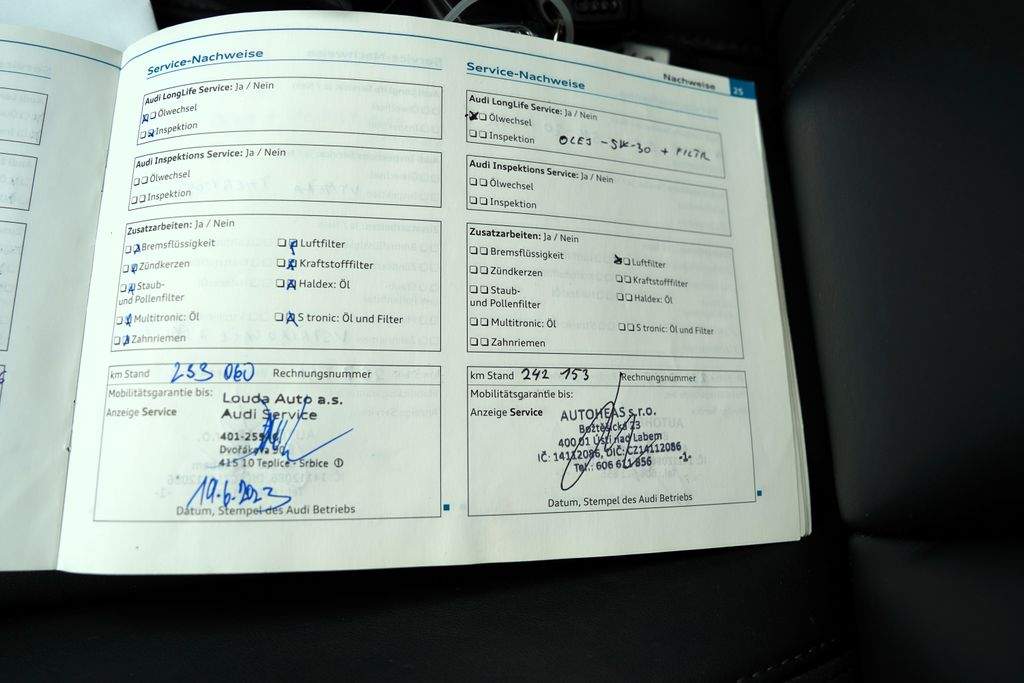 Service-Nachweise
Audi LongLife Service: Ja / Nein
Ölwechsel
Inspektion
Audi Inspektions Service: Ja / Nein
Ölwechsel
Inspektion
Zusatzarbeiten: Ja / Nein
Bremsflüssigkeit
Luftfilter
Zündkerzen
Kraftstofffilter
Staub-
und Pollenfilter
Haldex: Öl
Multitronic: Öl
S tronic: Öl und Filter
Zahnriemen
km Stand 233 060 Rechnungsnummer
Mobilitätsgarantie bis:
Anzeige Service
Louda Auto a.s.
Audi Service
Dvořákova
415 10 Teplice - Srbice ①
19.6.2023
Datum, Stempel des Audi Betriebs
Nachweise 25
Service-Nachweise
Audi LongLife Service: Ja / Nein
Ölwechsel
Inspektion
OLEJ -5W-30 + FILTR
Audi Inspektions Service: Ja / Nein
Ölwechsel
Inspektion
Zusatzarbeiten: Ja / Nein
Bremsflüssigkeit
Luftfilter
Zündkerzen
Kraftstofffilter
Staub-
und Pollenfilter
Haldex: Öl
Multitronic: Öl
S tronic: Öl und Filter
Zahnriemen
km Stand 242 153 Rechnungsnummer
Mobilitätsgarantie bis:
Anzeige Service
AUTOHEAS s.r.o.
Božtěšická 23
400 01 Ústí nad Labem
IČ: 14112086, DIČ: CZ14112086
Tel.: 606 611 856 -1-
Datum, Stempel des Audi Betriebs